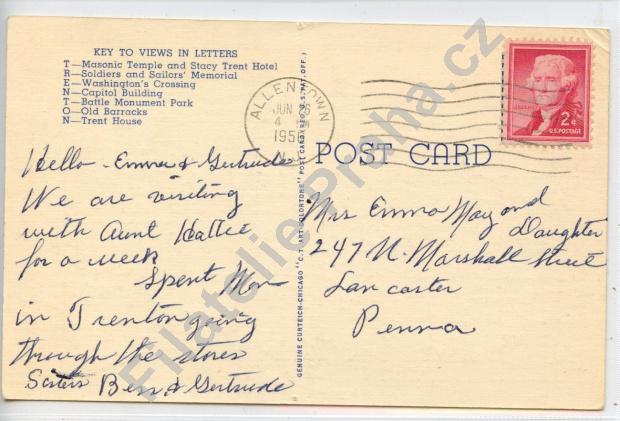 KEY TO VIEWS IN LETTERS
T—Masonic Temple and Stacy Trent Hotel
R—Soldiers and Sailors' Memorial
E—Washington's Crossing
N—Capitol Building
T—Battle Monument Park
O—Old Barracks
N—Trent House
Hello - Emma & Gertrude
We are visiting
with Aunt Hattie
for a week
Spent Mon
in Trenton going
through the stores
Sisters Bess & Gertrude
GENUINE CURTEICH-CHICAGO "C.T. ART-COLORTONE" POST CARD (REG. U.S. PAT. OFF.)
ALLENTOWN
JUN
4
195
N
2¢
U.S. POSTAGE
POST CARD
Mrs Emma May and
Daughter
247 N. Marshall Street
Lancaster
Penna
Filatelie-Praha.cz